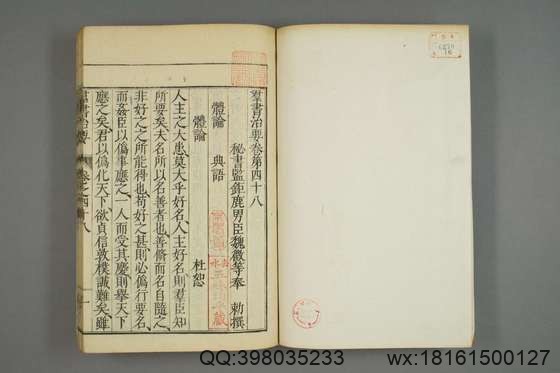 羣書治要卷第四十八
秘書監鉅鹿男臣魏徵等奉 勅撰
體論 典語
體論 杜恕
人主之大患莫大乎好名人主好名則羣臣知
所要矣夫名所以名善者也善脩而名自隨之
非好之之所能得也苟好之甚則必僞行要名
而姦臣以僞事應之一人而受其慶則舉天下
應之矣君以僞化天下欲貞信敦樸誠難矣雖
羣書治要 卷之四十八 一
QQ:398035233
wx:18161500127